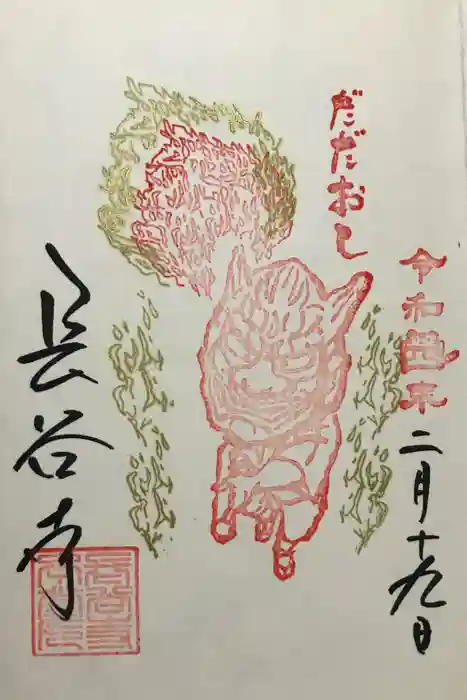 だだおし
令和四年
二月十九日
長谷寺